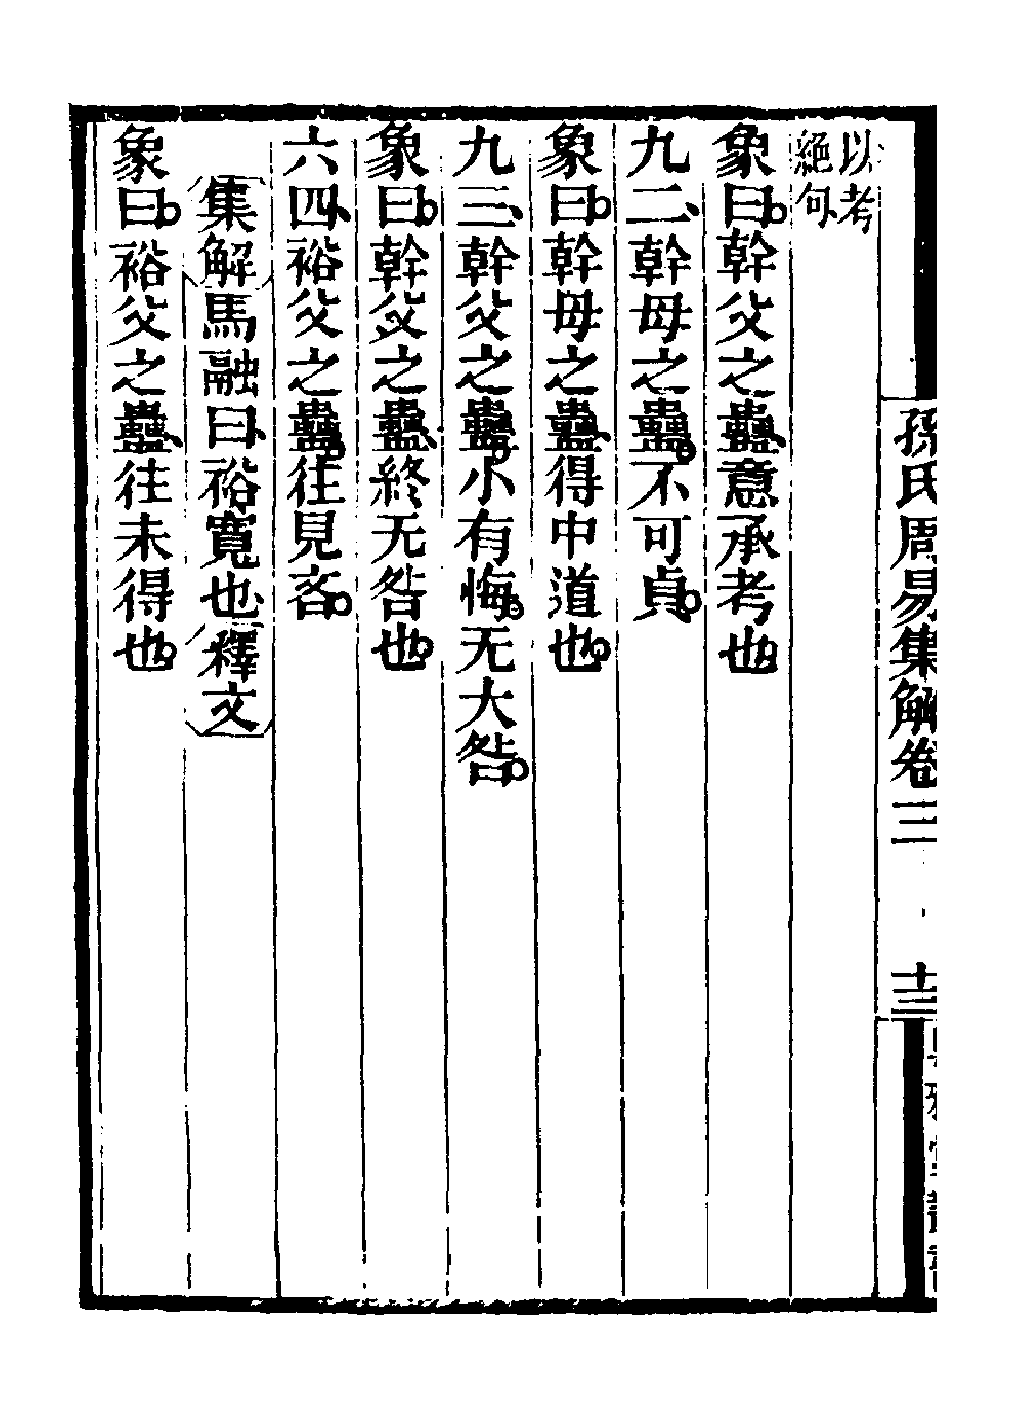 以考
絕句
象曰幹父之蠱意承考也
九二幹母之蠱不可貞
象曰幹母之蠱得中道也
九三幹父之蠱小有悔无大咎
象曰幹父之蠱終无咎也
六四裕父之蠱往見吝
集解馬融曰裕寬也釋文
象曰裕父之蠱往未得也
孫氏周易集解卷三
十三